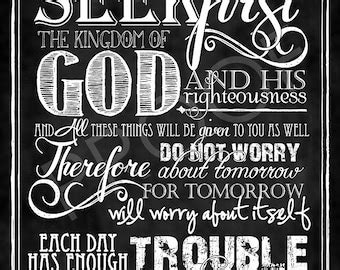 SEEK first
THE KINGDOM OF
GOD AND HIS
righteousness
AND All THESE THINGS WILL BE given TO YOU AS WELL.
Therefore DO NOT WORRY
about tomorrow
FOR TOMORROW
will worry about itself
EACH DAY
HAS ENOUGH TROUBLE